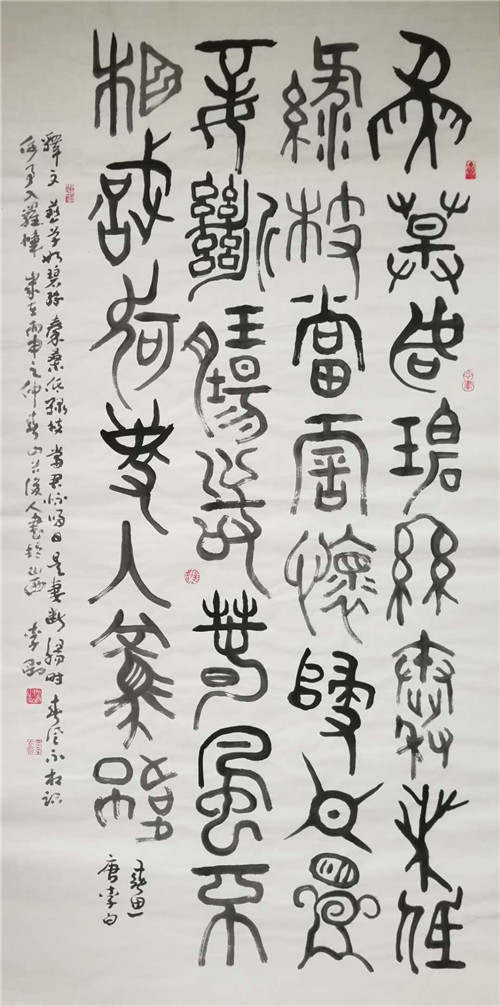 燕草如碧絲秦桑低
綠枝當君懷歸日是
妾斷腸時春風不
相識何事入羅幃
春思
唐李白
釋文 燕草如碧絲 秦桑低綠枝 當君懷歸日 是妾斷腸時 春風不相識
何事入羅幃 歲在丙申之仲春 山谷後人書於山西 李